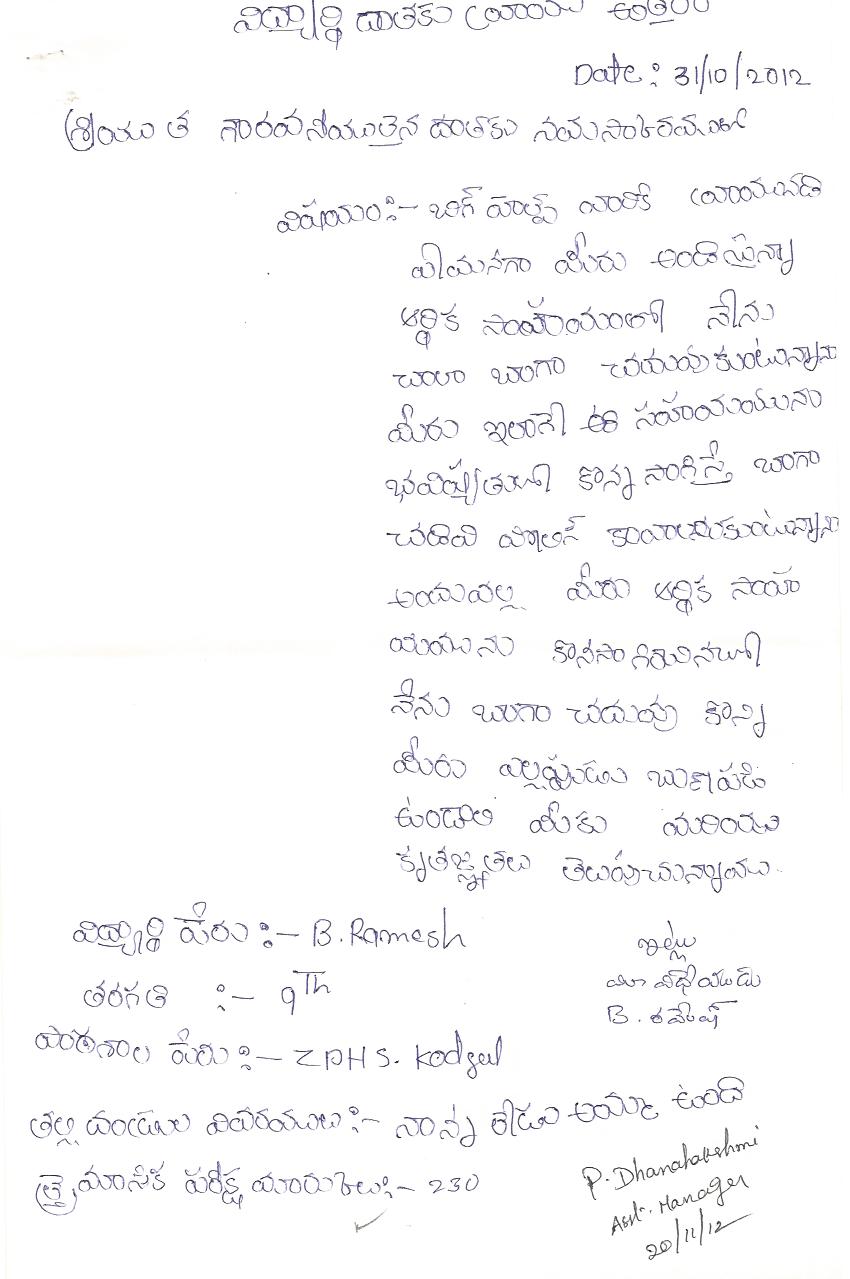 విద్యార్థి దాతకు వ్రాయు ఉత్తరం
Date: 31/10/2012
శ్రీయుత గౌరవనీయులైన దాతకు నమస్కారములో
విషయం:- బిగ్ హెల్ప్ వారికి వ్రాయబడి
ఏమనగా మీరు అందిస్తున్నా
ఆర్థిక సాహాయంతో నేను
చాలా బాగా చదువుకుంటున్నాను
మీరు ఇలాగే ఈ సహాయంమును
భవిష్యత్తులో కొన్నసాగిస్తే బాగా
చదివి పోలిస్ కావాలనుకుంటున్నాను
అందువల్ల మీరు ఆర్థిక సాహా
యమును కొనసాగించినచో
నేను బాగా చదువు కొన్ని
మీరు ఎల్లప్పుడు ఋణపడి
ఉండాలి మీకు మరియు
కృతజ్ఞతలు తెలుపుచున్నాము.
విద్యార్థి పేరు :- B. Ramesh
ఇట్లు
తరగతి :- 9Th
మీ విధేయుడు
B. రమేష్
పాఠశాల పేరు :- ZPHS. Kodgal
తల్లి దండ్రుల వివరములు :- నాన్న లేడు అమ్మ ఉంది
త్రైమాసిక పరీక్ష మారుకులు :- 230
P. Dhanalakshmi
Asst. Manager
20/11/12